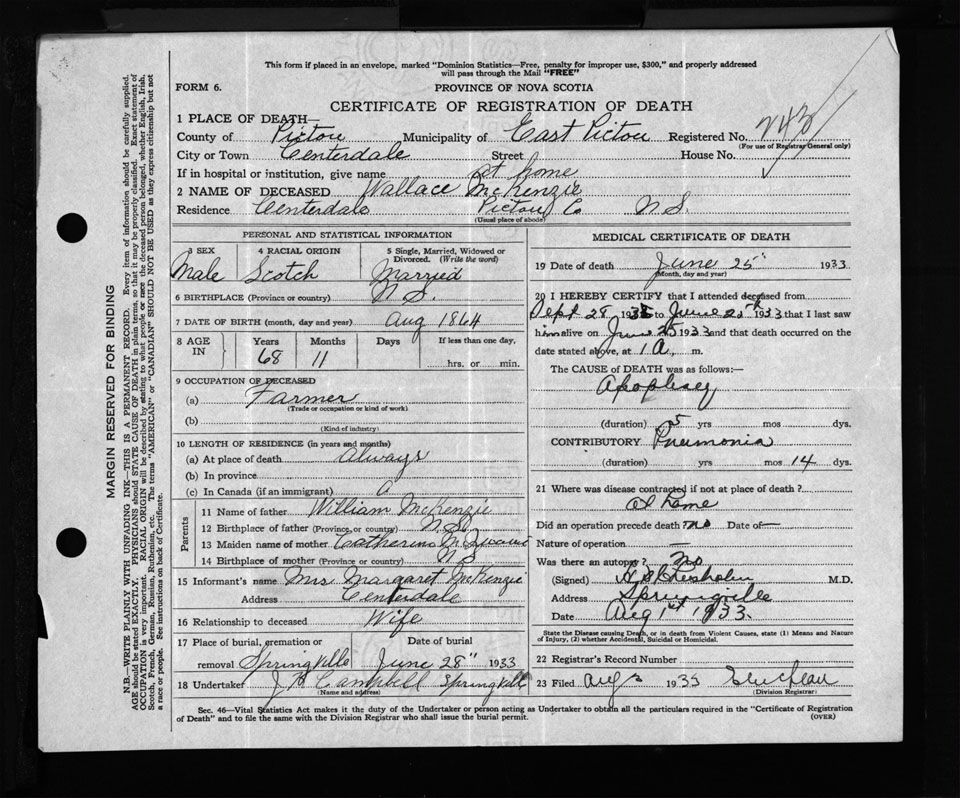 This form if placed in an envelope, marked "Dominion Statistics—Free, penalty for improper use, $300," and properly addressed
will pass through the Mail "FREE"
FORM 6.
PROVINCE OF NOVA SCOTIA
CERTIFICATE OF REGISTRATION OF DEATH
1 PLACE OF DEATH—
County of Pictou Municipality of East Pictou Registered No. 243
(For use of Registrar General only)
City or Town Centerdale Street House No.
If in hospital or institution, give name at home
2 NAME OF DECEASED Wallace McKenzie
Residence Centerdale Pictou Co N.S.
(Usual place of abode)
PERSONAL AND STATISTICAL INFORMATION
3 SEX 4 RACIAL ORIGIN 5 Single, Married, Widowed or
Divorced. (Write the word)
Male Scotch Married
6 BIRTHPLACE (Province or country) N.S.
7 DATE OF BIRTH (month, day and year) Aug 1864
8 AGE IN Years Months Days If less than one day,
68 11 hrs. or min.
9 OCCUPATION OF DECEASED
(a) Farmer
(Trade or occupation or kind of work)
(b)
(Kind of industry)
10 LENGTH OF RESIDENCE (in years and months)
(a) At place of death Always
(b) In province
(c) In Canada (if an immigrant)
Parents
11 Name of father William McKenzie
12 Birthplace of father (Province or country) N.S.
13 Maiden name of mother Catherine
14 Birthplace of mother (Province or country) N.S.
15 Informant's name Mrs Margaret McKenzie
Address Centerdale
16 Relationship to deceased Wife
17 Place of burial, cremation or Date of burial
removal Springville June 28" 1933
18 Undertaker J H Campbell Springville
(Name and address)
MEDICAL CERTIFICATE OF DEATH
19 Date of death June 25" 1933
(Month, day and year)
20 I HEREBY CERTIFY that I attended deceased from
Sept 28 to June 25th 1933 that I last saw
him alive on June 25 1933 and that death occurred on
the date stated above, at 1 A. m.
The CAUSE of DEATH was as follows:—
Apoplexy
(duration) 5 yrs mos dys.
CONTRIBUTORY Pneumonia
(duration) yrs mos 14 dys.
21 Where was disease contracted if not at place of death?
at home
Did an operation precede death? no Date of —
Nature of operation —
Was there an autopsy? No
(Signed) M.D.
Address Springville
Date Aug 1st 1933.
State the Disease causing Death, or in death from Violent Causes, state (1) Means and Nature
of Injury, (2) whether Accidental, Suicidal or Homicidal.
22 Registrar's Record Number
23 Filed Aug 1933
(Division Registrar)
Sec. 46—Vital Statistics Act makes it the duty of the Undertaker or person acting as Undertaker to obtain all the particulars required in the "Certificate of Registration
of Death" and to file the same with the Division Registrar who shall issue the burial permit. (OVER)
MARGIN RESERVED FOR BINDING
N.B.—WRITE PLAINLY WITH UNFADING INK—THIS IS A PERMANENT RECORD. Every item of information should be carefully supplied.
AGE should be stated EXACTLY. PHYSICIANS should STATE CAUSE OF DEATH in plain terms, so that it may be properly classified. Exact statement of
OCCUPATION is very important. RACIAL ORIGIN will be described by stating to what people or race the deceased person belonged, whether English, Irish,
Scotch, French, German, Russian, Ruthenian, etc. The terms "AMERICAN" or "CANADIAN" SHOULD NOT BE USED as they express citizenship but not
a race or people. See instructions on back of Certificate.